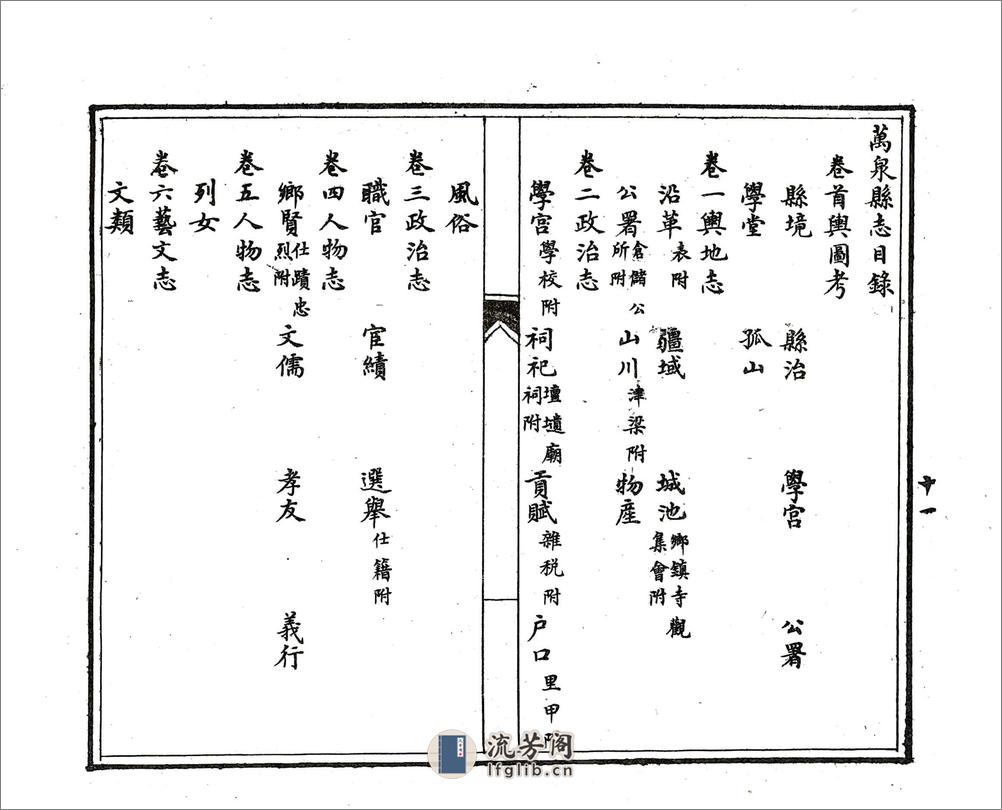 萬泉縣志目錄
卷首輿圖考
縣境 縣治 學宮 公署
學堂 孤山
卷一輿地志
沿革表附 疆域 城池鄉鎮寺觀集會附
公署倉儲公所附 山川津梁附 物產
卷二政治志
學宮學校附 祠祀壇壝廟祠附 貢賦雜税附 户口里甲附
風俗
卷三政治志
職官 宦績 選舉仕籍附
卷四人物志
鄉賢仕蹟忠烈附 文儒 孝友 義行
卷五人物志
列女
卷六藝文志
文類
十一
流芳阁
lfglib.cn